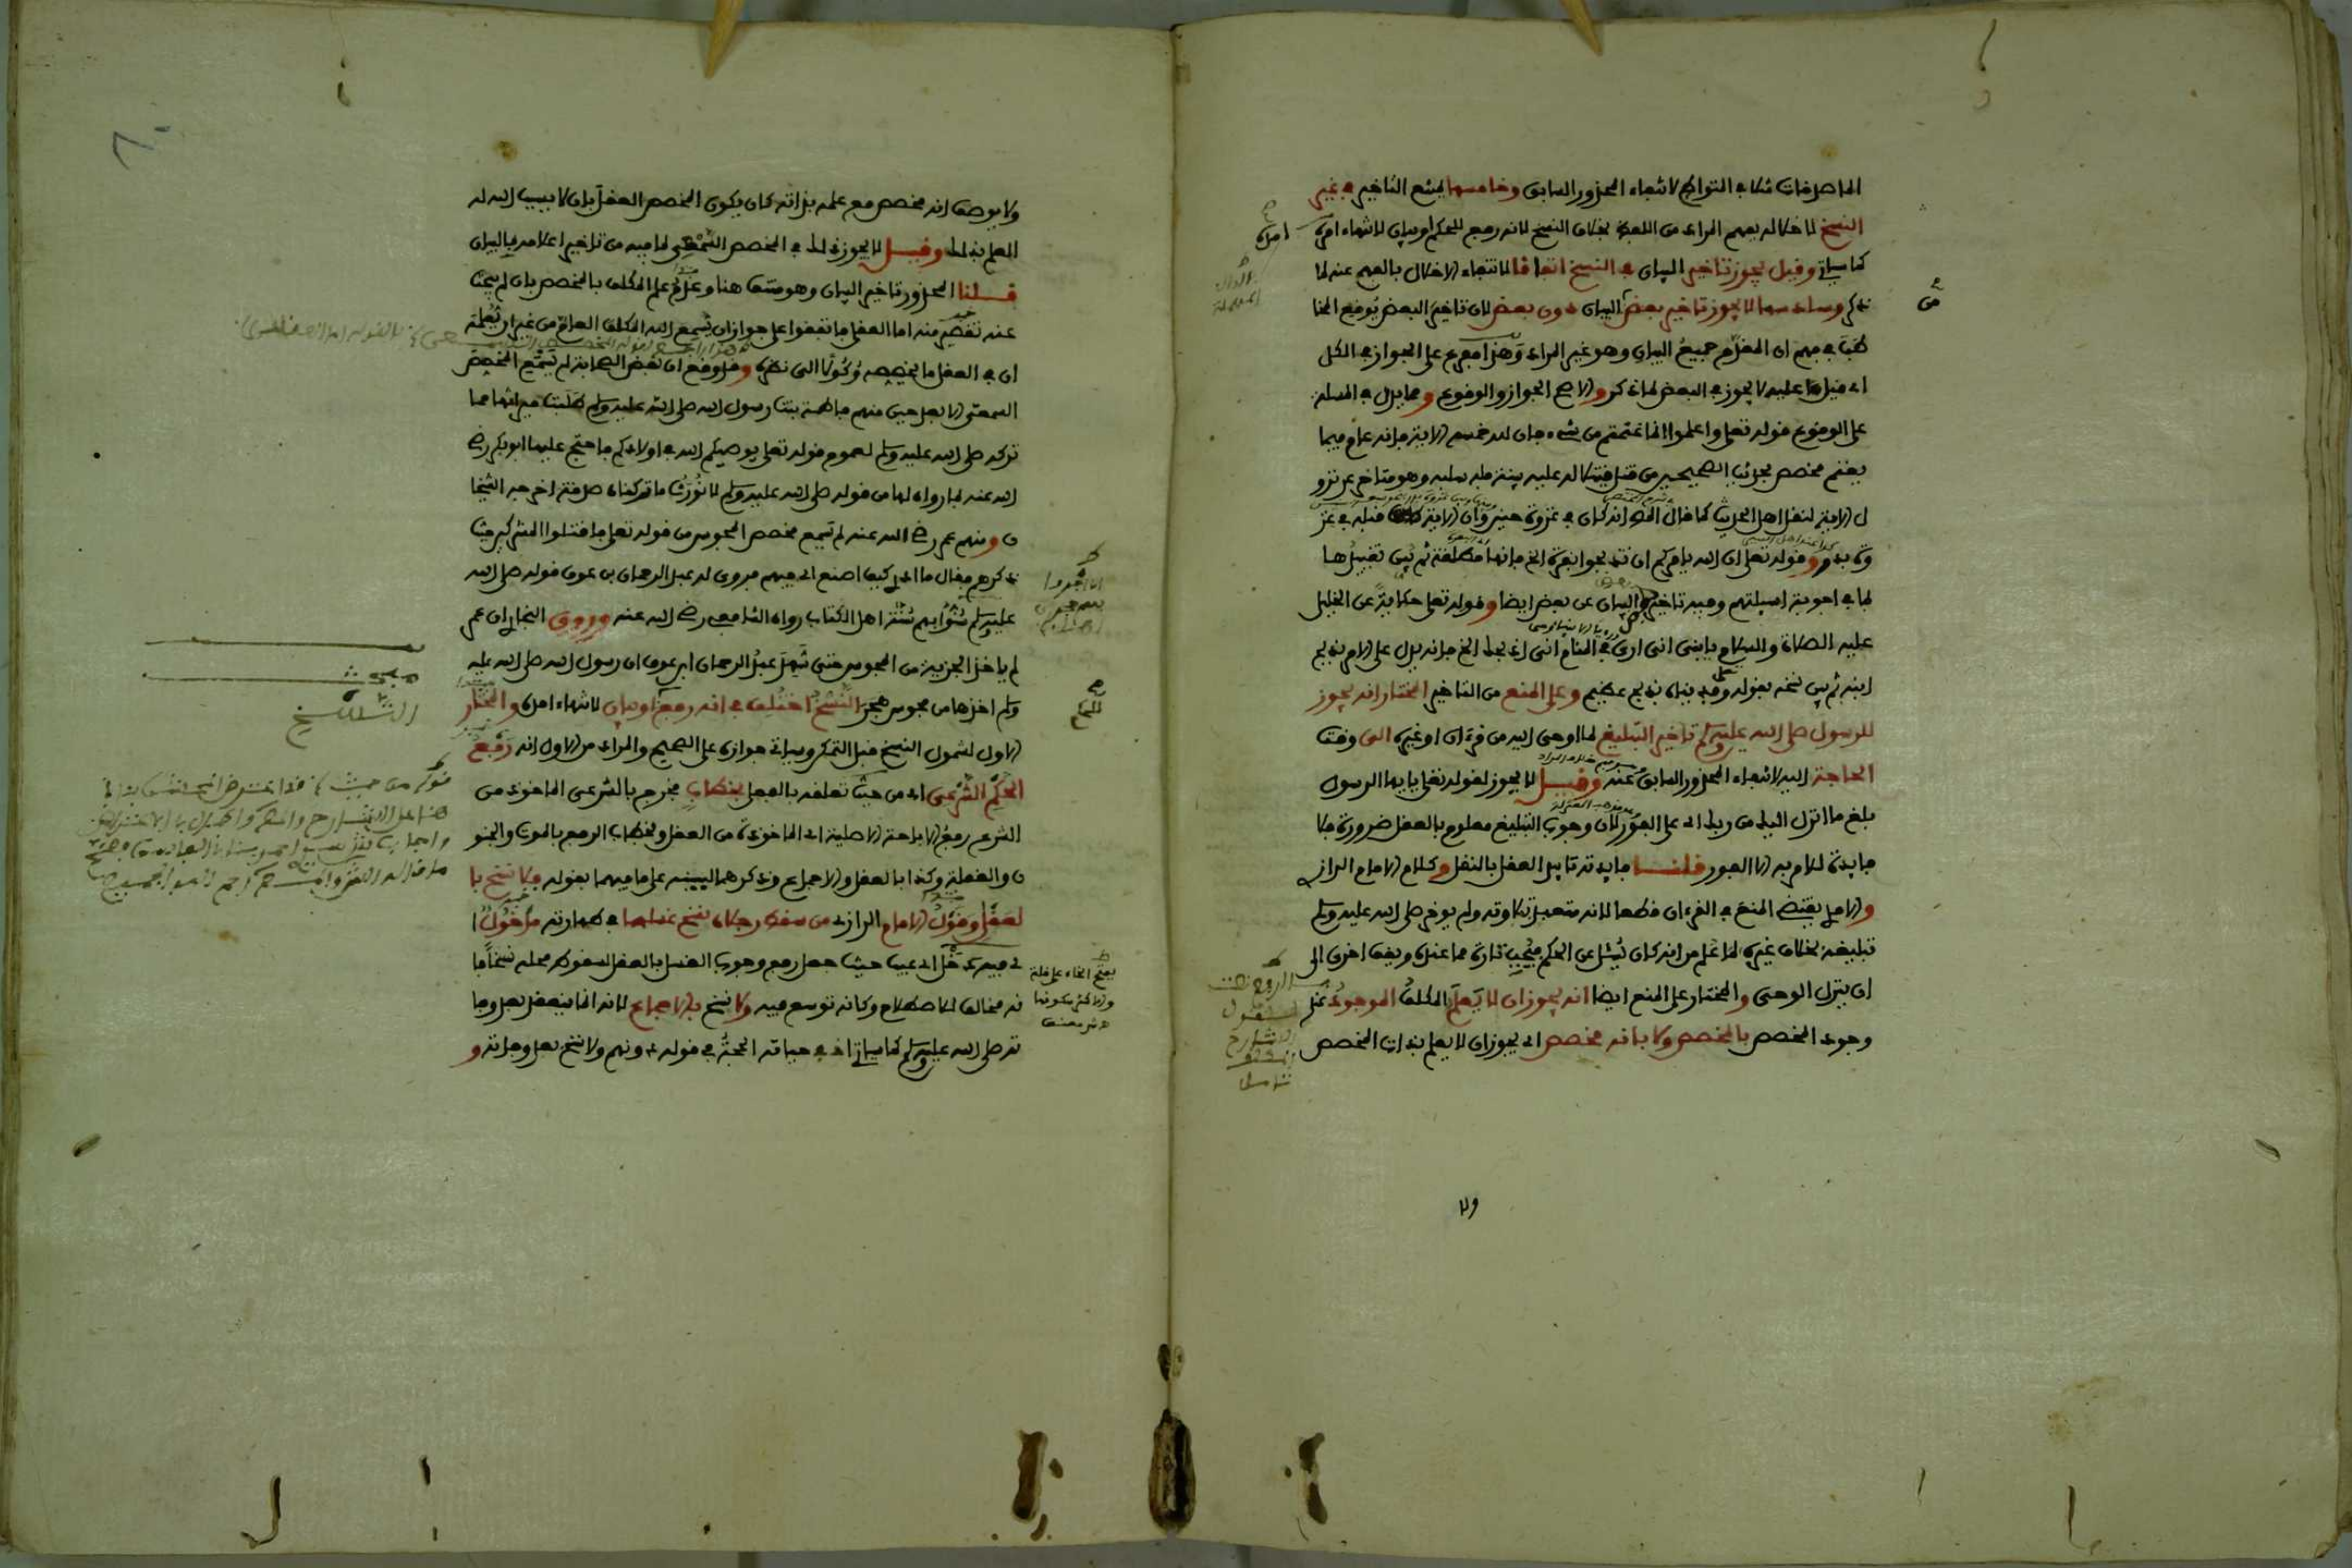 الماصدقات مثلا في التواطئ لانتفاء المحذور السابق وخامسها يمتنع التاخير في غير
النسخ لاخلاله بفهم المراد من اللفظ بخلاف النسخ لانه رفع للحكم او بيان لانتهاء امده
كما سياتي وقيل يجوز تاخير البيان في النسخ اتفاقا لانتفاء الاخلال بالفهم عنه لما
ذكر وسادسها لا يجوز تاخير بعض البيان دون بعض لان تاخير البعض يوقع المخا
طب في فهم ان المقدم جميع البيان وهو غير المراد وهذا مفرع على الجواز في الكل
اي قيل عليه لا يجوز في البعض لما ذكر والاصح الجواز والوقوع ومما يدل في المسالة
على الوقوع قوله تعلى واعلموا انما غنمتم من شيء فان لله خمسه الاية فانه عام فيما
يغنم مخصص بحديث الصحيحين من قتل قتيلا له عليه بينة فله سلبه وهو متاخر عن نزو
ل الاية لنقل اهل الحديث كما قال المص انه كان في غزوة حنين وان الاية قبله في غز
وة بدر وقوله تعلى ان الله يامركم ان تذبحوا بقرة الخ فانها مطلقة ثم بين تقييدها
بما في اجوبة اسيلتهم وفيه تاخير بعض البيان عن بعض ايضا وقوله تعلى حكاية عن الخليل
عليه الصلاة والسلام يابني اني ارى في المنام اني اذبحك الخ فانه يدل على الامر بذبح
ابنه ثم بين نسخه بقوله وفديناه بذبح عظيم وعلى المنع من التاخير المختار انه يجوز
للرسول صلى الله عليه وسلم تاخير التبليغ لما اوحي اليه من قرءان او غيره الى وقت
الحاجة اليه لانتفاء المحذور السابق عنه وقيل لا يجوز لقوله تعلى يا يها الرسول
بلغ ما انزل اليك من ربك اي على الفور لان وجوب التبليغ معلوم بالعقل ضرورة فلا
فايدة للامر به الا الفور قلنا فايدته تاييد العقل بالنقل وكلام الامام الرازي
والامدي يقتضي المنع في القرءان قطعا لانه متعبد بتلاوته ولم يؤخر صلى الله عليه وسلم
تبليغه بخلاف غيره لما علم من انه كان يسئل عن الحكم فيجيب تارة مما عنده ويقف اخرى الى
ان ينزل الوحي والمختار على المنع ايضا انه يجوز ان لا يعلم المكلف الموجود عند
وجود المخصص بالمخصص ولا بانه مخصص اي يجوز ان لا يعلم بذات المخصص
ولا
امده
ولا بوصف انه مخصص مع علمه بذاته كان يكون المخصص العقل بان لا يسبب الله له
العلم بذلك وقيل لا يجوز ذلك في المخصص السمعي لما فيه من تاخير اعلامه بالبيان
قلنا المحذور تاخير البيان وهو منتف هنا وعدم علم المكلف بالمخصص بان لم يبحث
عنه تقصير منه اما العقلي فاتفقوا على جواز ان يسمع الله المكلف العام من غير ان يعلمه
ان في العقل ما يخصصه وكولا الى نظره وقد وقع ان بعض الصحابة لم يسمع المخصص
السمعي الا بعد حين منهم فاطمة بنت رسول الله صلى الله عليه وسلم طلبت ميراثها مما
تركه صلى الله عليه وسلم لعموم قوله تعلى يوصيكم الله في اولادكم فاحتج عليها ابو بكر رضي
الله عنه بما رواه لها من قوله صلى الله عليه وسلم لا نورث ما تركناه صدقة اخرجه الشيخا
ن ومنهم عمر رضي الله عنه لم يسمع مخصص المجوس من قوله تعلى فاقتلوا المشركين حيث
ذكرهم فقال ما ادري كيف اصنع اي فيهم فروى له عبد الرحمان بن عوف قوله صلى الله
عليه وسلم سنوا بهم سنة اهل الكتاب رواه الشافعي رضي الله عنه وروى البخاري ان عمر
لم ياخذ الجزية من المجوس حتى شهد عبد الرحمان ابن عوف ان رسول الله صلى الله عليه
وسلم اخذها من مجوس هجر النسخ اختلف في انه رفع او بيان لانتهاء امده والمختار
الاول لشموله النسخ قبل التمكن وسياتي جوازه على الصحيح والمراد من الاول انه رفع
الحكم الشرعي اي من حيث تعلقه بالفعل بخطاب فخرج بالشرعي الماخوذ من
الشرع رفع الاباحة الاصلية اي الماخوذة من العقل وبخطاب الرفع بالموت والجنو
ن والغفلة وكذا بالعقل والاجماع وذكرهما لينبه على ما فيهما بقوله فلا نسخ با
لعقل وقول الامام الرازي من سقط رجلاه نسخ غسلهما في طهارته مدخول ا
ي فيه دخل اي عيب حيث جعل رفع وجوب الغسل بالعقل لسقوط محله نسخا فا
نه مخالف للاصطلاح وكانه توسع فيه ولا نسخ بالاجماع لانه انما ينعقد بعد وفا
ته صلى الله عليه وسلم كما سياتي اذ في حياته الحجة في قوله دونهم ولا نسخ بعد وفاته و
مبحث
النسخ
بفتح الخاء على قلة